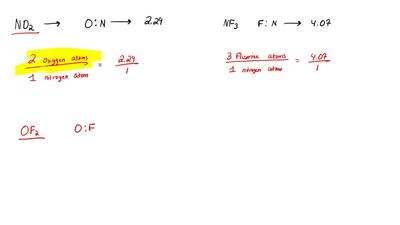 NO₂ → O:N → 2.29
NF₃ F:N → 4.07
2 Oxygen atoms / 1 nitrogen atom = 2.29 / 1
3 Fluorine atoms / 1 nitrogen atom = 4.07 / 1
OF₂ O:F